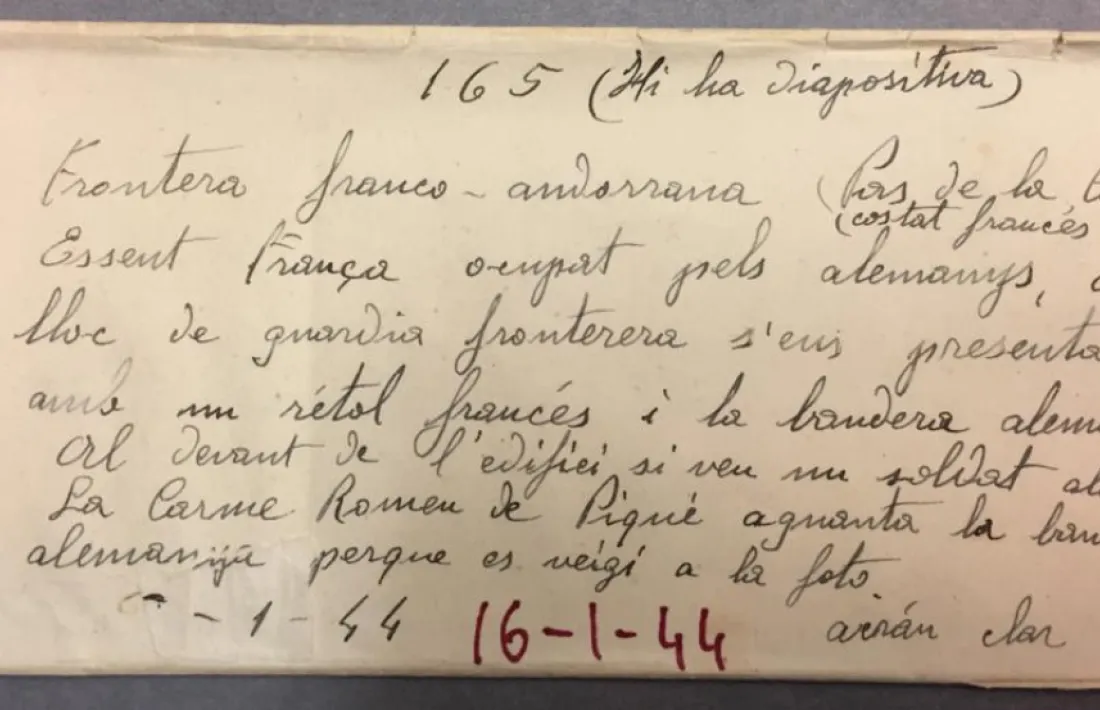 165 (Hi ha diapositiva)
Frontera franco-andorrana (Pas de la
(costat francés
Essent França ocupat pels alemanys,
lloc de guardia fronterera s'ens presenta
amb un rétol francés i la bandera alem
Al devant de l'edifici si veu un soldat al
La Carme Romeu de Piqué aguanta la ban
alemanya perque es veigi a la foto.
-1-44 16-1-44 clar